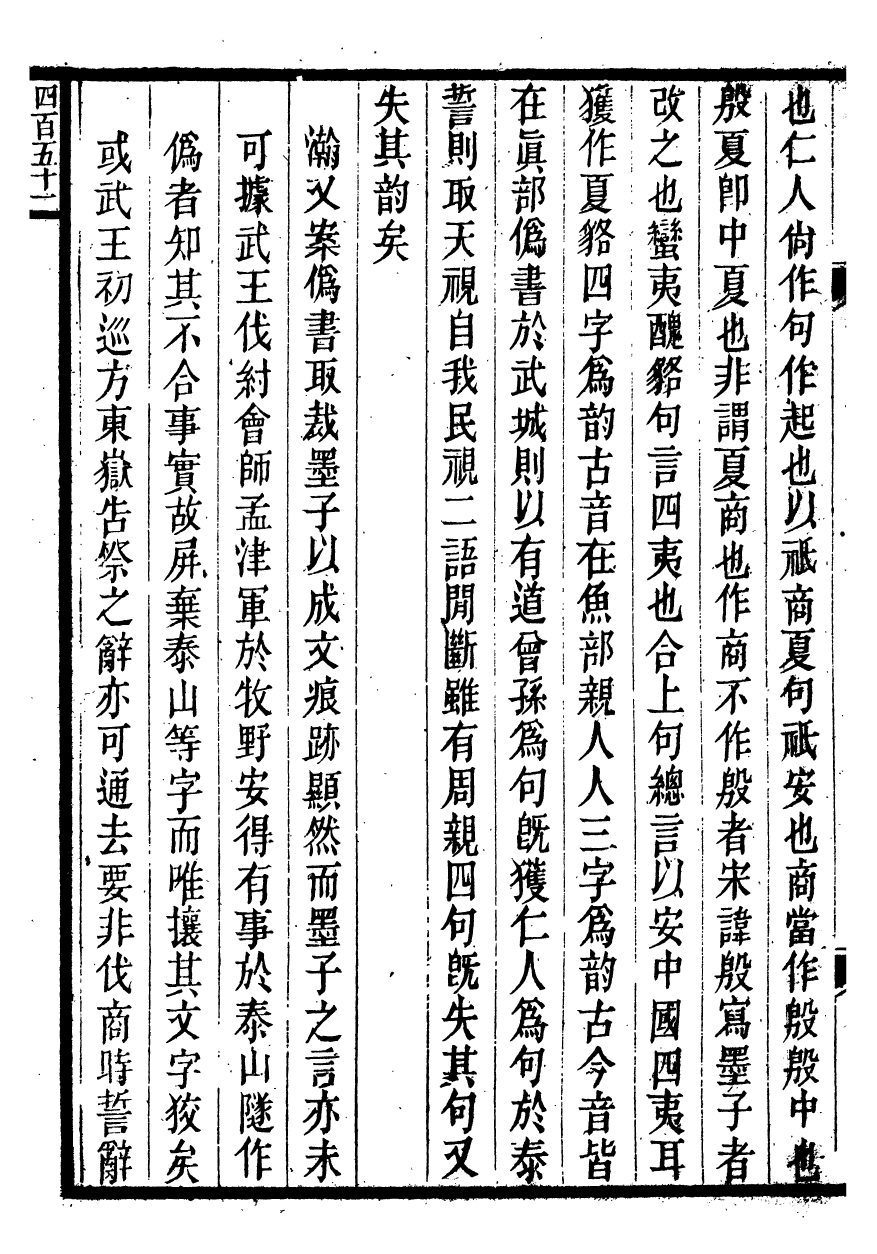 也仁人尙作句作起也以祗商夏句祗安也商當作殷殷中也
殷夏卽中夏也非謂夏商也作商不作殷者宋諱殷寫墨子者
改之也蠻夷醜貉句言四夷也合上句總言以安中國四夷耳
獲作夏貉四字爲韵古音在魚部親人人三字爲韵古今音皆
在眞部僞書於武城則以有道曾孫爲句旣獲仁人爲句於泰
誓則取天視自我民視二語閒斷雖有周親四句旣失其句又
失其韵矣
瀚又案僞書取裁墨子以成文痕跡顯然而墨子之言亦未
可據武王伐紂會師孟津軍於牧野安得有事於泰山隧作
僞者知其不合事實故屛棄泰山等字而唯攘其文字狡矣
或武王初巡方東嶽告祭之辭亦可通去要非伐商時誓辭
四百五十一